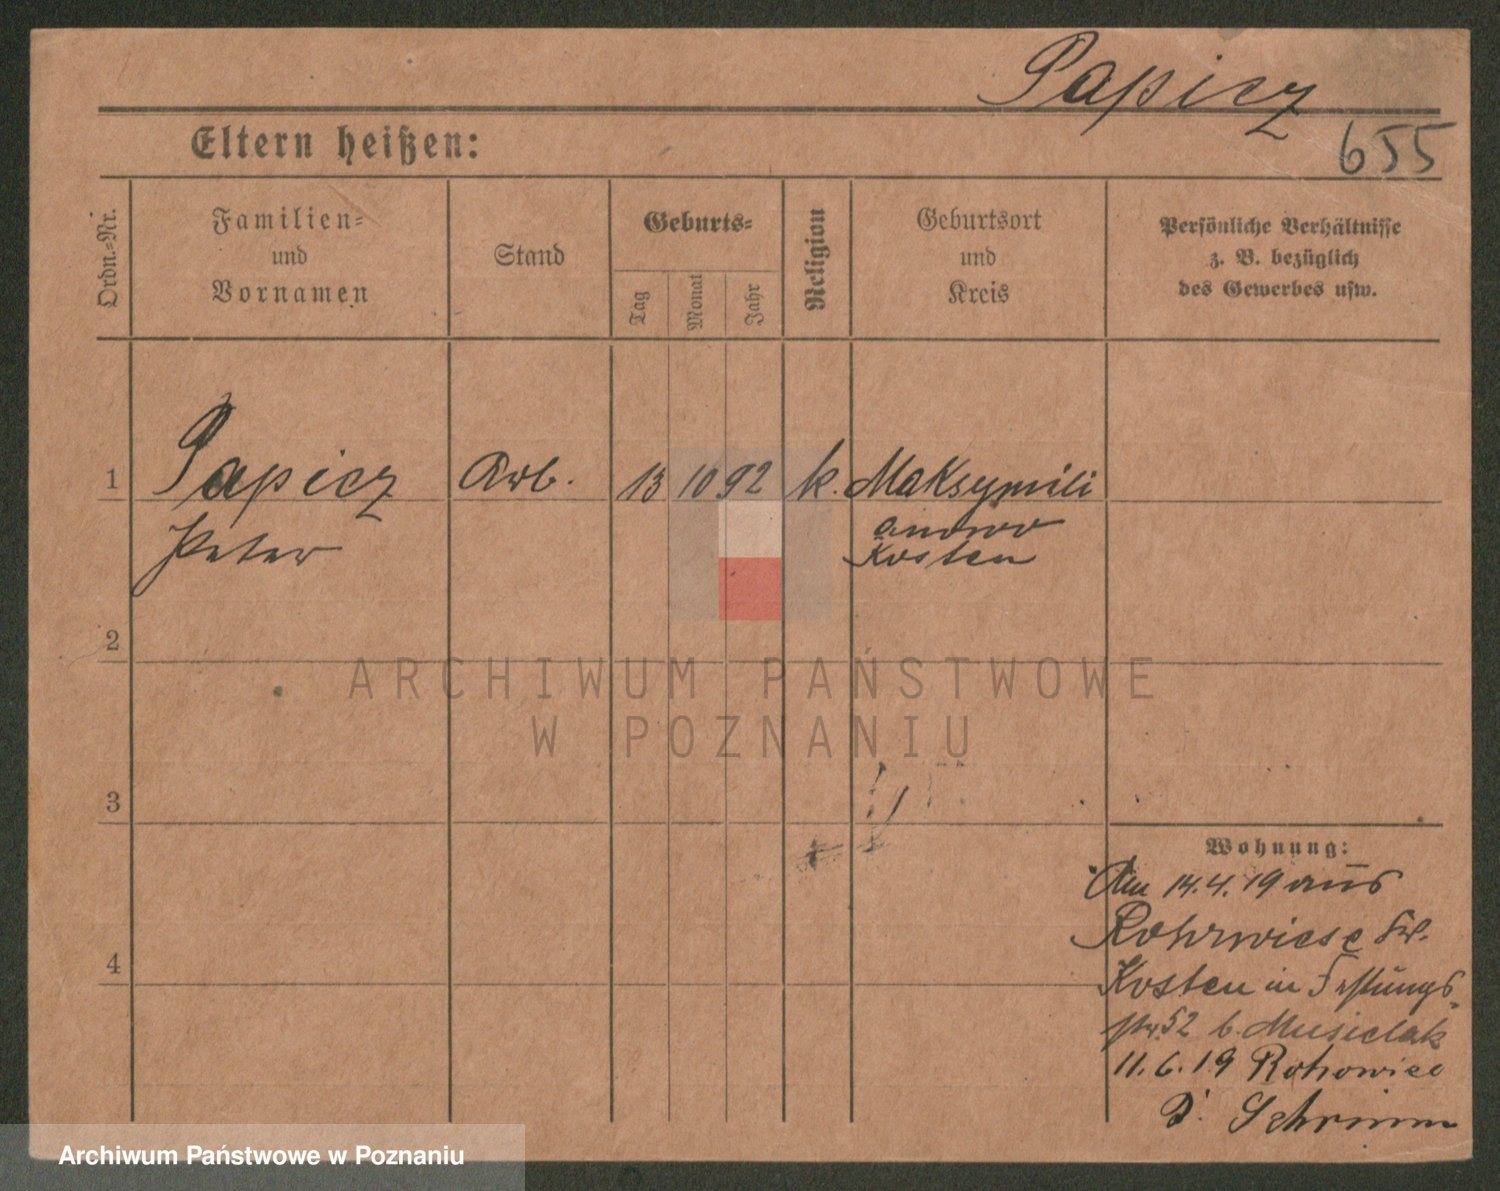 Papicz
655
Eltern heißen:
Ordn.-Nr.
Familien-
und
Vornamen
Stand
Geburts-
Tag
Monat
Jahr
Religion
Geburtsort
und
Kreis
Persönliche Verhältnisse
z. B. bezüglich
des Gewerbes usw.
1
Papicz
Peter
Arb.
13
10
92
k.
Maksymili
anowo
Kosten
2
3
4
Wohnung:
Am 14.4.19 aus
Rohrwiese Kr.
Kosten in Festungs-
str. 52 b. Musielak
11.6.19
Schrimm
ARCHIWUM PAŃSTWOWE
W POZNANIU
Archiwum Państwowe w Poznaniu